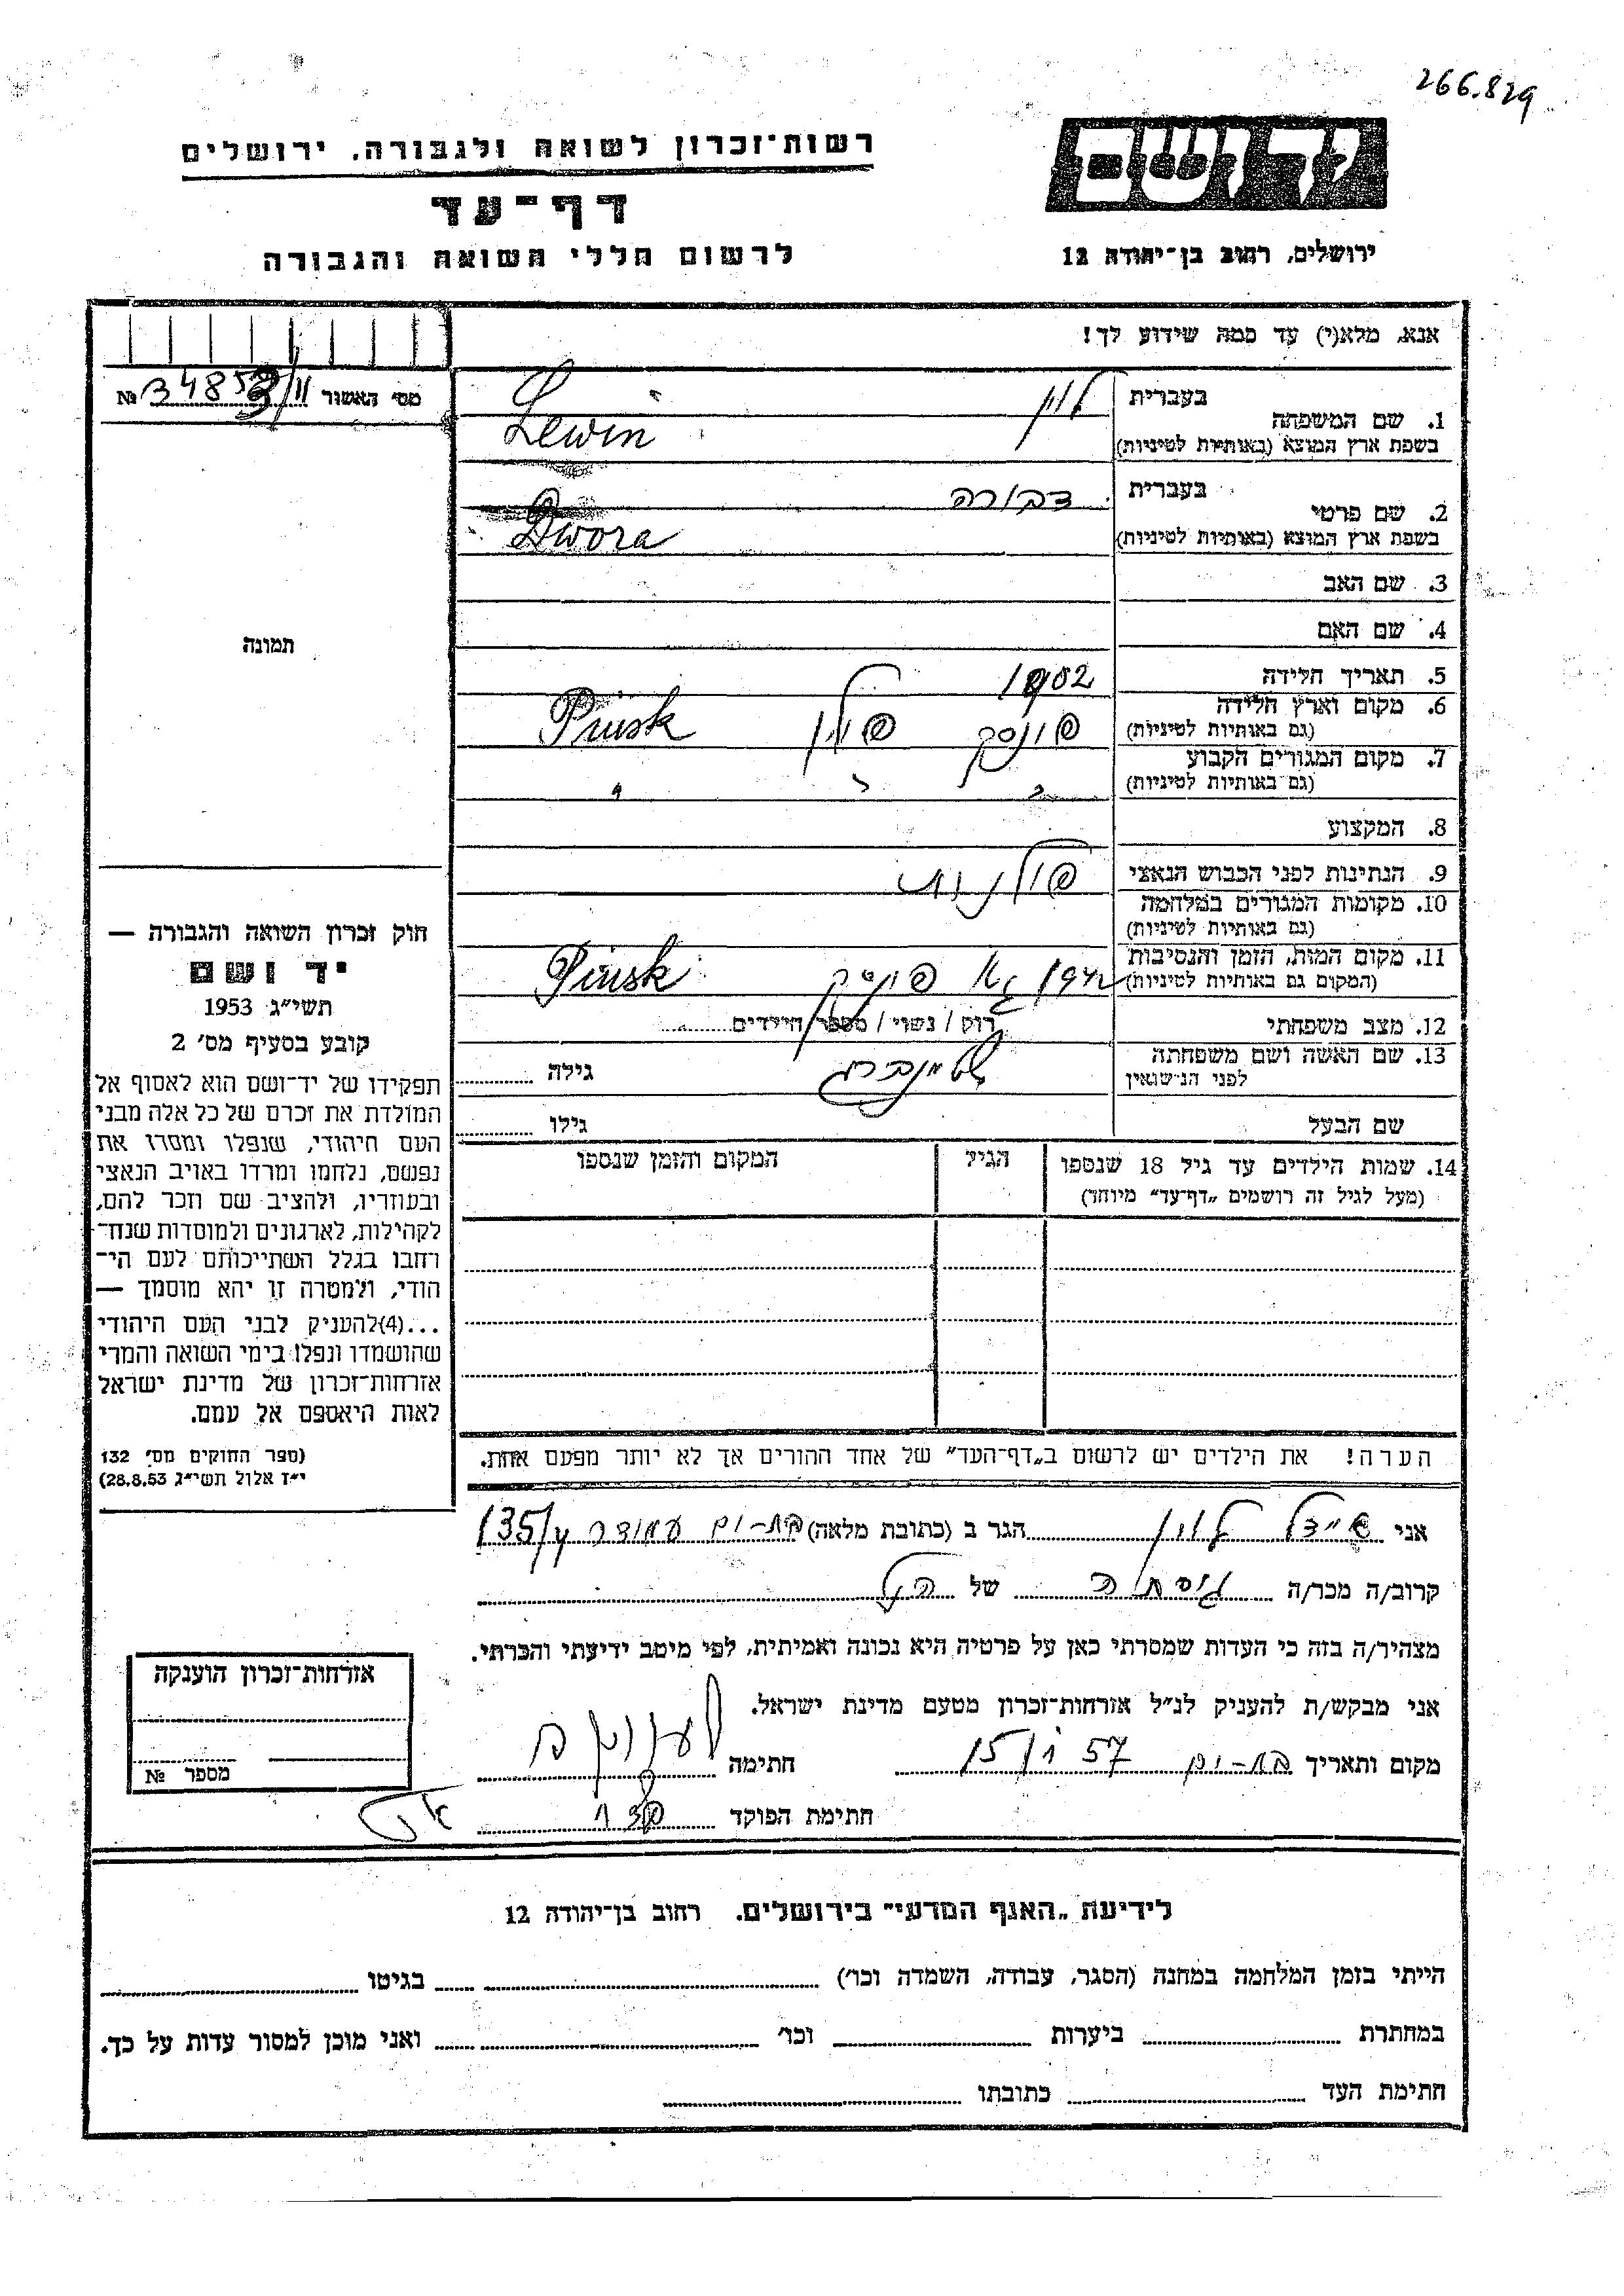 266.829
יד ושם
רשות־זכרון לשואה ולגבורה, ירושלים
דף־עד
לרשום חללי השואה והגבורה
ירושלים, רחוב בן־יהודה 12
אנא, מלא(י) עד כמה שידוע לך!
מס׳ האשור № 34853/II
1. שם המשפחה בעברית לוין
בשפת ארץ המוצא (באותיות לטיניות) Lewin
2. שם פרטי בעברית דבורה
בשפת ארץ המוצא (באותיות לטיניות) Dwora
3. שם האב
4. שם האם
תמונה
5. תאריך הלידה 1902
6. מקום וארץ הלידה (גם באותיות לטיניות) פינסק פולין Pinsk
7. מקום המגורים הקבוע (גם באותיות לטיניות) " " "
8. המקצוע
9. הנתינות לפני הכבוש הנאצי פולנית
10. מקומות המגורים במלחמה (גם באותיות לטיניות)
11. מקום המות, הזמן והנסיבות (המקום גם באותיות לטיניות) פינסק Pinsk
12. מצב משפחתי רוק / נשוי / מספר הילדים
13. שם האשה ושם משפחתה לפני הנישואין גילה
שם הבעל גילו
14. שמות הילדים עד גיל 18 שנספו הגיל המקום והזמן שנספו
(מעל לגיל זה רושמים „דף־עד" מיוחד)
חוק זכרון השואה והגבורה —
יד ושם
תשי״ג 1953
קובע בסעיף מס׳ 2
תפקידו של יד־ושם הוא לאסוף אל
המולדת את זכרם של כל אלה מבני
העם היהודי, שנפלו ומסרו את
נפשם, נלחמו ומרדו באויב הנאצי
ובעוזריו, ולהציב שם וזכר להם,
לקהילות, לארגונים ולמוסדות שנח־
רחבו בגלל השתייכותם לעם הי־
הודי, ולמטרה זו יהא מוסמך —
...(4) להעניק לבני העם היהודי
שהושמדו ונפלו בימי השואה והמרי
אזרחות־זכרון של מדינת ישראל
לאות היאספם אל עמם.
(ספר החוקים מס׳ 132
י״ז אלול תשי״ג 28.8.53)
הערה! את הילדים יש לרשום ב„דף־העד" של אחד ההורים אך לא יותר מפעם אחת.
אני לוין הגר ב (כתובת מלאה) בת-ים 135/4
קרוב/ה מכר/ה גיסתי של הנ״ל
מצהיר/ה בזה כי העדות שמסרתי כאן על פרטיה היא נכונה ואמיתית, לפי מיטב ידיעתי והכרתי.
אני מבקש/ת להעניק לנ״ל אזרחות־זכרון מטעם מדינת ישראל.
מקום ותאריך בת-ים 57 חתימה
חתימת הפוקד
אזרחות־זכרון הוענקה
מספר №
לידיעת „האגף המדעי" בירושלים. רחוב בן־יהודה 12
הייתי בזמן המלחמה במחנה (הסגר, עבודה, השמדה וכו׳) בגיטו
במחתרת ביערות וכו׳ ואני מוכן למסור עדות על כך.
חתימת העד כתובתו